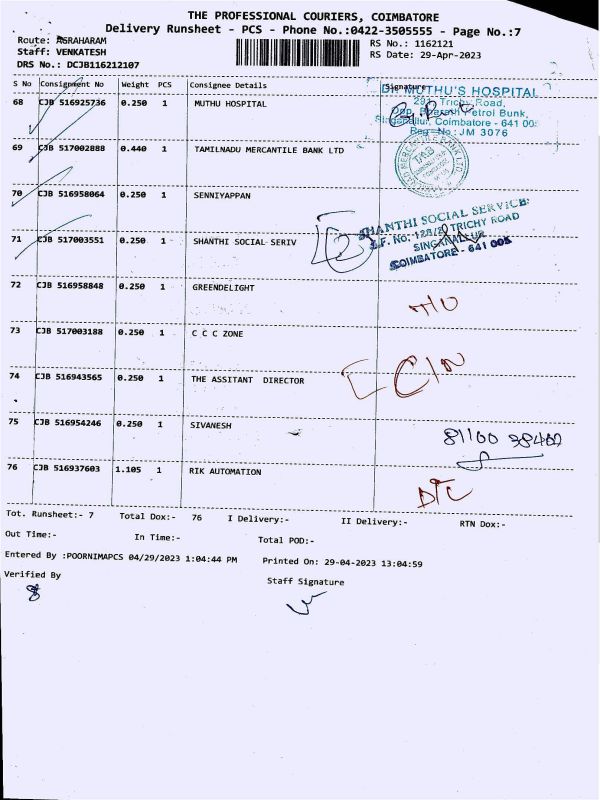 THE PROFESSIONAL COURIERS, COIMBATORE
Delivery Runsheet - PCS - Phone No.:0422-3505555 - Page No.:7
Route: AGRAHARAM
RS No.: 1162121
Staff: VENKATESH
RS Date: 29-Apr-2023
DRS No.: DCJB116212107
S No Consignment No Weight PCS Consignee Details Signature
68 CJB 516925736 0.250 1 MUTHU HOSPITAL
Dr. MUTHU'S HOSPITAL
Trichy Road,
Opp. Bharath Petrol Bunk,
Singanallur, Coimbatore - 641 00
Reg No : JM 3076
69 CJB 517002888 0.440 1 TAMILNADU MERCANTILE BANK LTD
70 CJB 516958064 0.250 1 SENNIYAPPAN
71 CJB 517003551 0.250 1 SHANTHI SOCIAL SERIV
SHANTHI SOCIAL SERVICE
S.F. No. TRICHY ROAD
SINGANALLUR
COIMBATORE - 641 005
72 CJB 516958848 0.250 1 GREENDELIGHT
73 CJB 517003188 0.250 1 C C C ZONE
74 CJB 516943565 0.250 1 THE ASSITANT DIRECTOR
75 CJB 516954246 0.250 1 SIVANESH
76 CJB 516937603 1.105 1 RIK AUTOMATION
Tot. Runsheet:- 7 Total Dox:- 76 I Delivery:- II Delivery:- RTN Dox:-
Out Time:- In Time:- Total POD:-
Entered By :POORNIMAPCS 04/29/2023 1:04:44 PM Printed On: 29-04-2023 13:04:59
Verified By Staff Signature